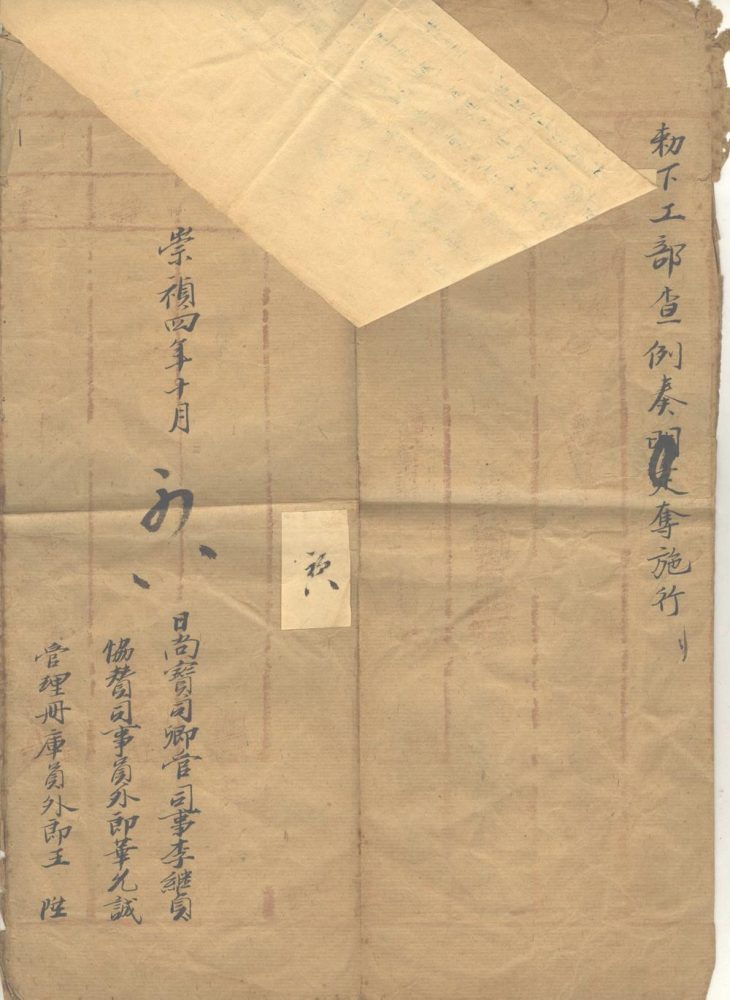 勅下工部查例奏明定奪施行
崇禎四年十月 初八
日尚寶司卿管司事李繼貞
協贊司事員外郎華允誠
管理册庫員外郎王 陞
初八